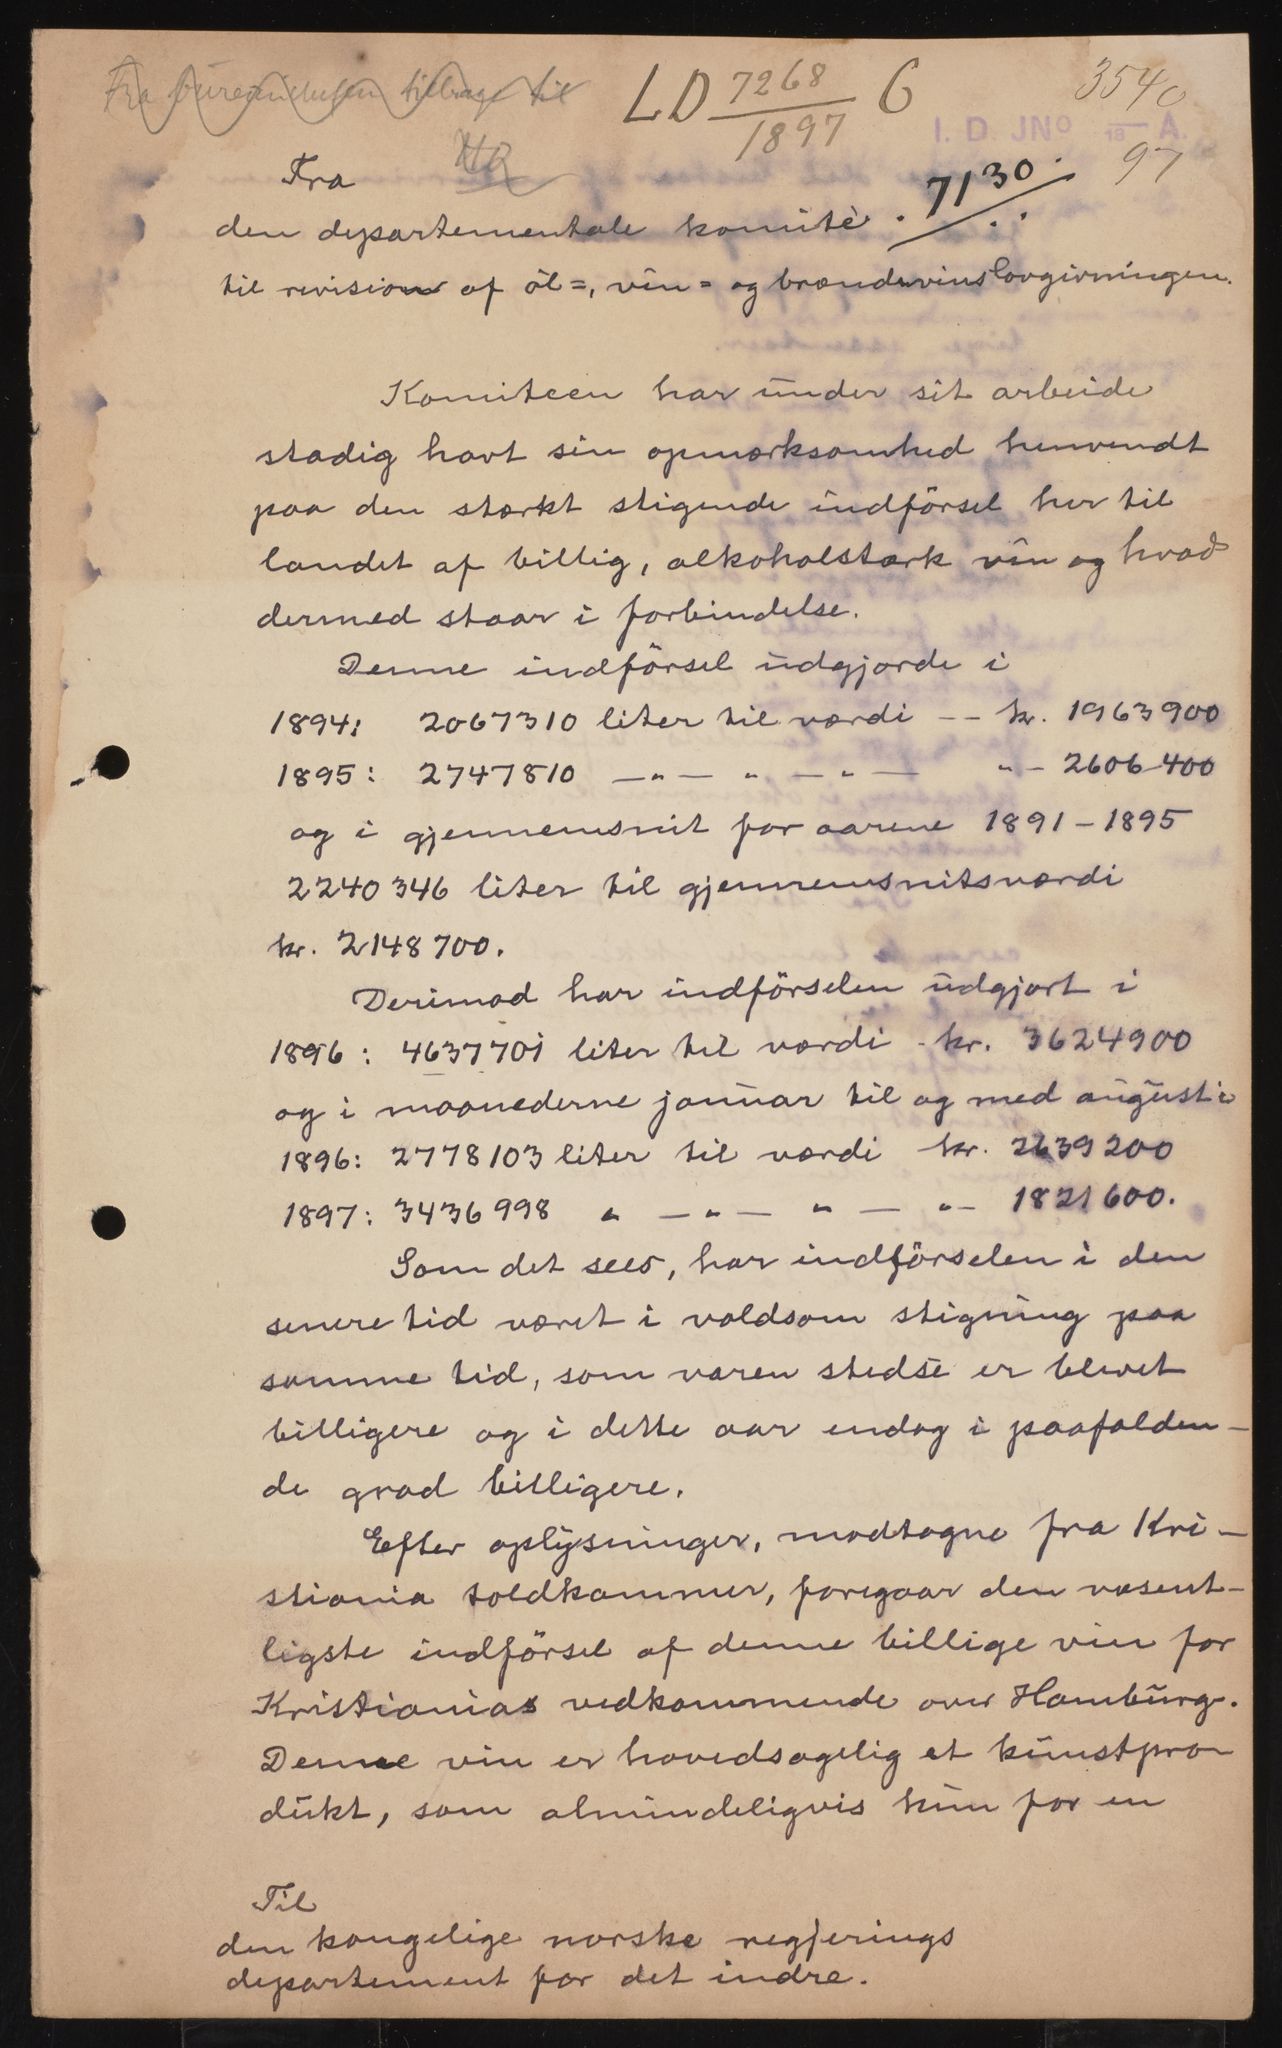 Fra bureauchefen tilbage til
LD 7268/1897 C
3540
I. D. JNo 18 A.
97
HR
7130
Fra
den departementale komité
til revision af öl=, vin= og brændevinslovgivningen.
Komiteen har under sit arbeide
stadig havt sin opmærksomhed henvendt
paa den stærkt stigende indförsel her til
landet af billig, alkoholstærk vin og hvad
dermed staar i forbindelse.
Denne indförsel udgjorde i
1894: 2067310 liter til værdi -- kr. 1963900
1895: 2747810 —„— „ —„— „— 2606400
og i gjennemsnit for aarene 1891-1895
2240346 liter til gjennemsnitsværdi
kr. 2148700.
Derimod har indförselen udgjort i
1896: 4637701 liter til værdi - kr. 3624900
og i maanederne januar til og med august i
1896: 2778103 liter til værdi kr. 2639200
1897: 3436998 „ —„— „ — „— 1821600.
Som det sees, har indförselen i den
senere tid været i voldsom stigning paa
samme tid, som varen stedse er blevet
billigere og i dette aar endog i paafalden-
de grad billigere.
Efter oplysninger, modtagne fra Kri-
stiania toldkammer, foregaar den væsent-
ligste indförsel af denne billige vin for
Kristianias vedkommende over Hamburg.
Denne vin er hovedsagelig et kunstpro-
dukt, som almindeligvis kun for en
Til
den kongelige norske regjerings
departement for det indre.